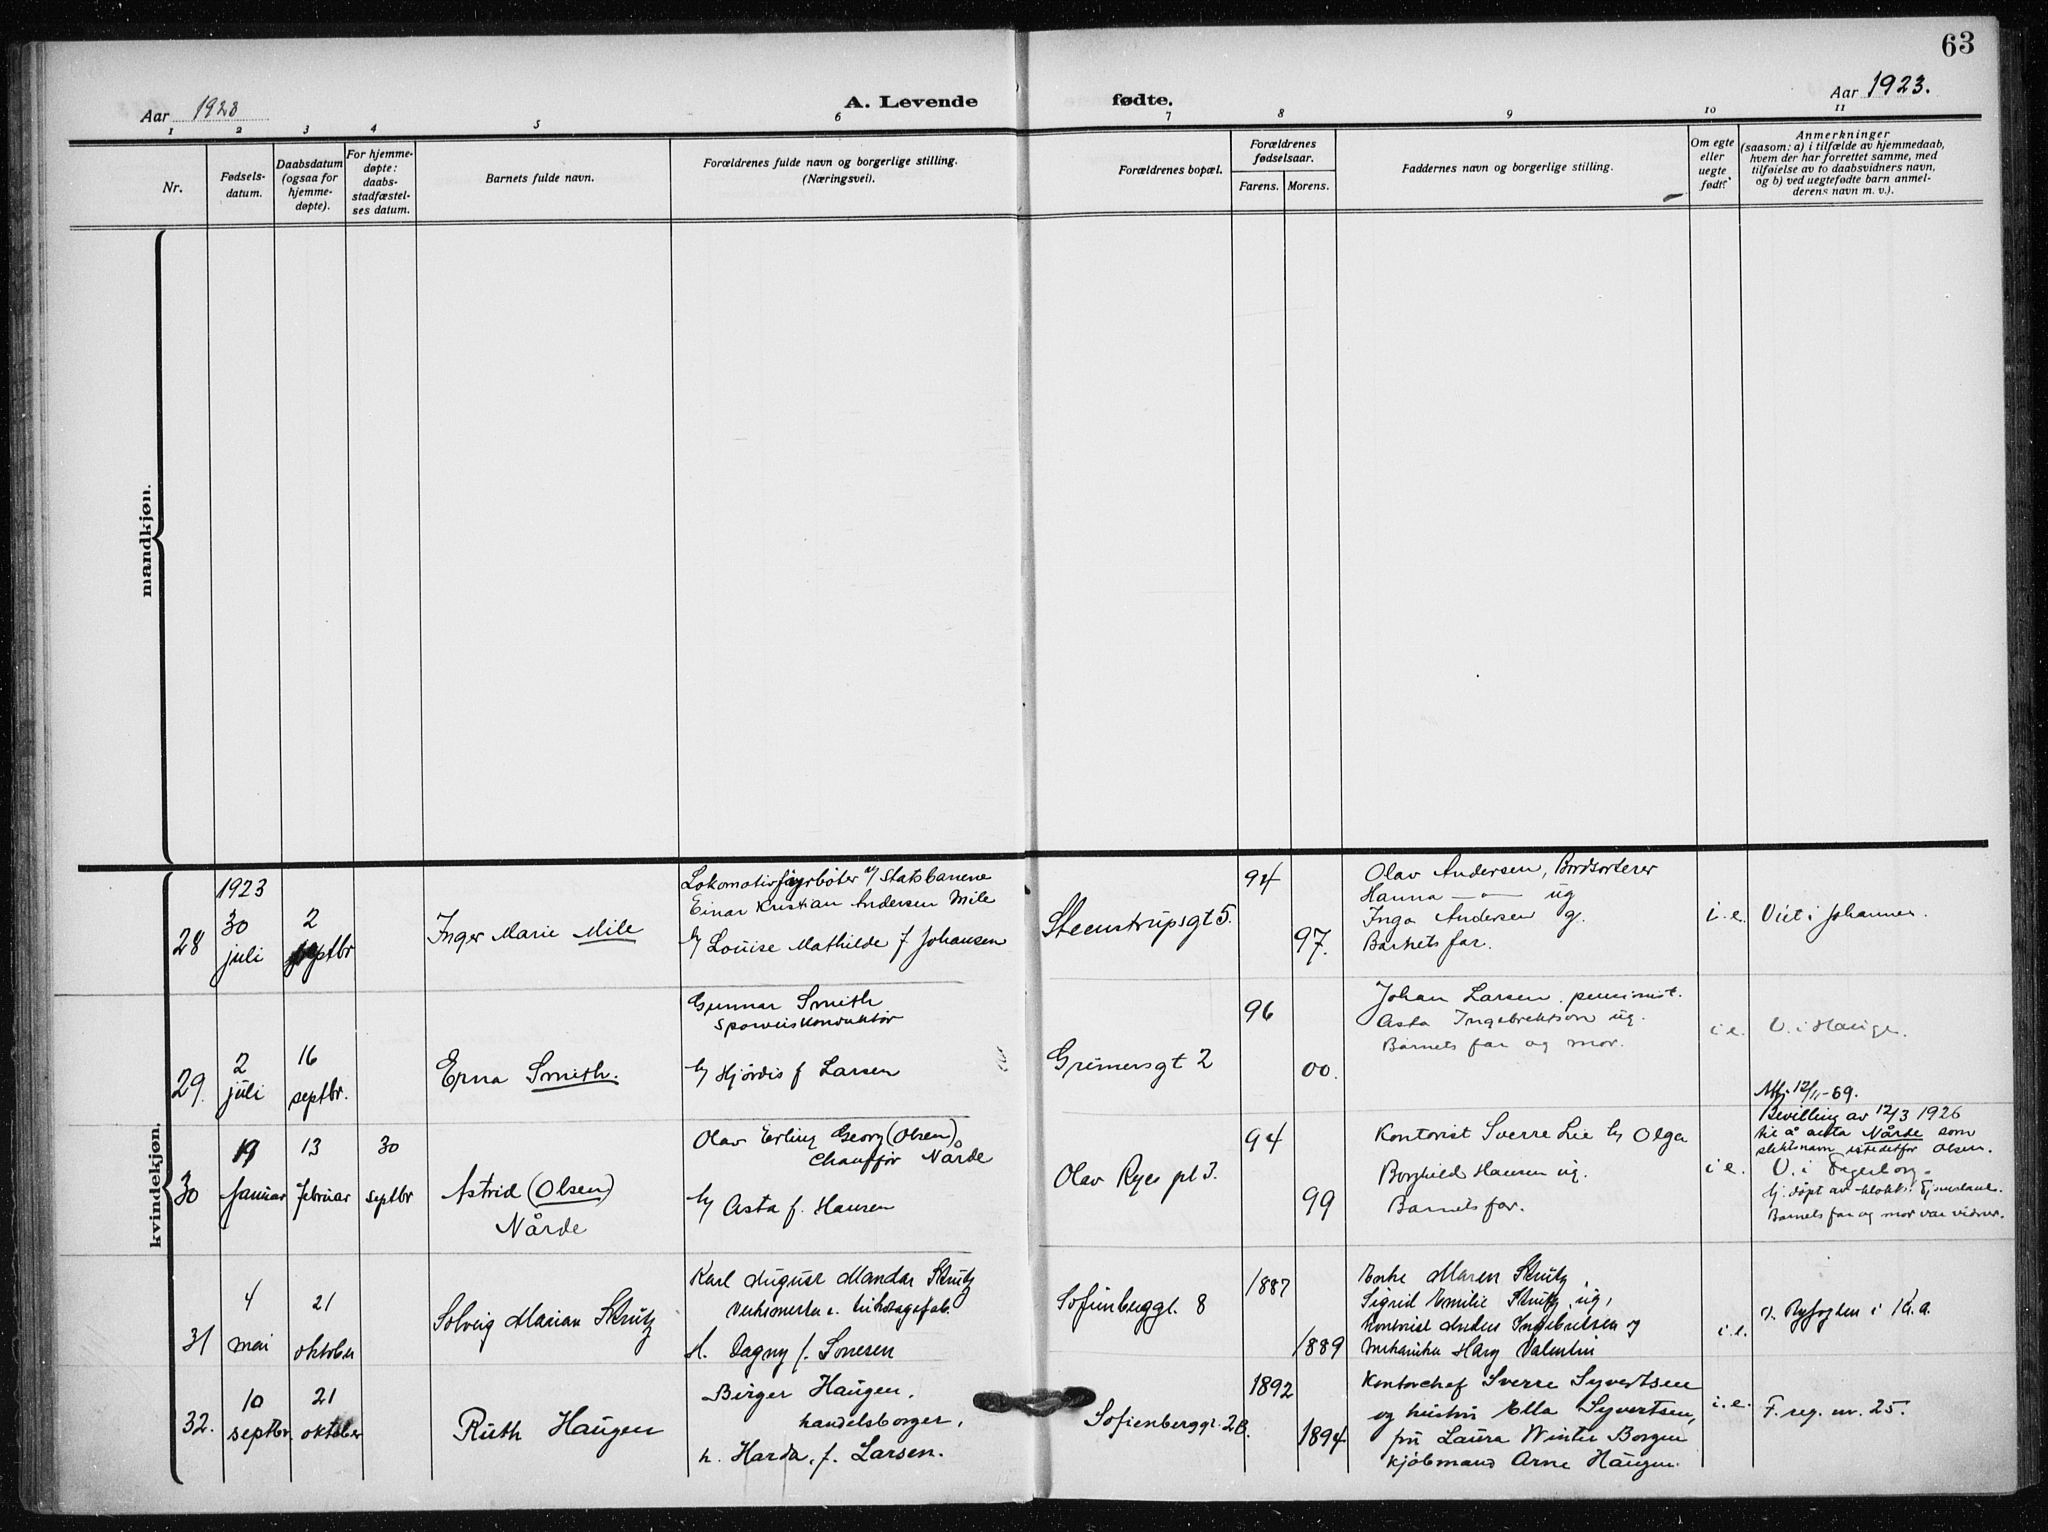 63
Aar 1923
A. Levende
fødte.
Aar 1923.
1 2 3 4 5 6 7 8 9 10 11
Nr.
Fødsels-
datum.
Daabsdatum
(ogsaa for
hjemme-
døpte).
For hjemme-
døpte:
daabs-
stadfæstel-
ses datum.
Barnets fulde navn.
Forældrenes fulde navn og borgerlige stilling.
(Næringsvei).
Forældrenes bopæl.
Forældrenes
fødselsaar.
Farens. Morens.
Faddernes navn og borgerlige stilling.
Om egte
eller
uegte
født.
Anmerkninger
(saasom: a) i tilfælde av hjemmedaab,
hvem der har forrettet samme, med
tilføielse av to daabsvidners navn,
og b) ved uegtefødte barn anmel-
derens navn m. v.).
mandkjøn.
kvindekjøn.
28
1923
30
juli
2
septbr
Inger Marie Mile
Lokomotivfyrbøter v/ Statsbanene
Einar Kristian Andersen Mile
h/ Louise Mathilde f Johansen
Steenstrupsgt 5.
94
97.
Olav Andersen, Bordsorterer
Hanna — " — ug
Inga Andersen g.
Barnets far.
i.e.
Viet i Johannes.
29.
2
juli
16
septbr.
Erna Smith.
Gunnar Smith
Sporveiskonduktør
h/ Hjørdis f Larsen
Grünersgt 2
96
00.
Johan Larsen, pensionist.
Asta Ingebrektson ug.
Barnets far og mor.
i e.
V. i Hauge.
Att. 12/11-69.
30
19
Januar
13
februar
30
septbr
Astrid (Olsen)
Nårde
Olav Erling Georg (Olsen)
Chauffør Nårde
h/ Asta f. Hansen
Olav Ryes pl 3.
94
99
Kontorist Sverre Lie h/ Olga
Borghild Hansen ug.
Barnets far.
i e.
Bevilling av 12/3 1926
til å anta Nårde som
slektsnavn istedetfor Olsen.
V. i Fagerborg.
Hj. døpt av klokk.
Barnets far og mor var vidner.
31
4
mai
21
oktober
Solveig Marian Strutz
Karl August Mandar Strutz
h. Dagny f. Sonesen
Sofienberggt. 8
1887
1889
Enke Maren Strutz,
Sigrid Emilie Strutz, ug,
Kontorist Anders Ingebretsen og
mekaniker Harry Valentin
i.e.
v. Byfogden i Kr.a.
32.
10
septbr.
21
oktober
Ruth Haugen
Birger Haugen,
handelsborger,
h. Harda, f. Larsen.
Sofienberggt. 2B.
1892
1894.
Kontorchef Sverre Syvertsen
og hustru Ella Syvertsen,
fru Laura Winter Borgen
kjøbmand Arne Haugen.
i.e.
F. reg. nr. 25.